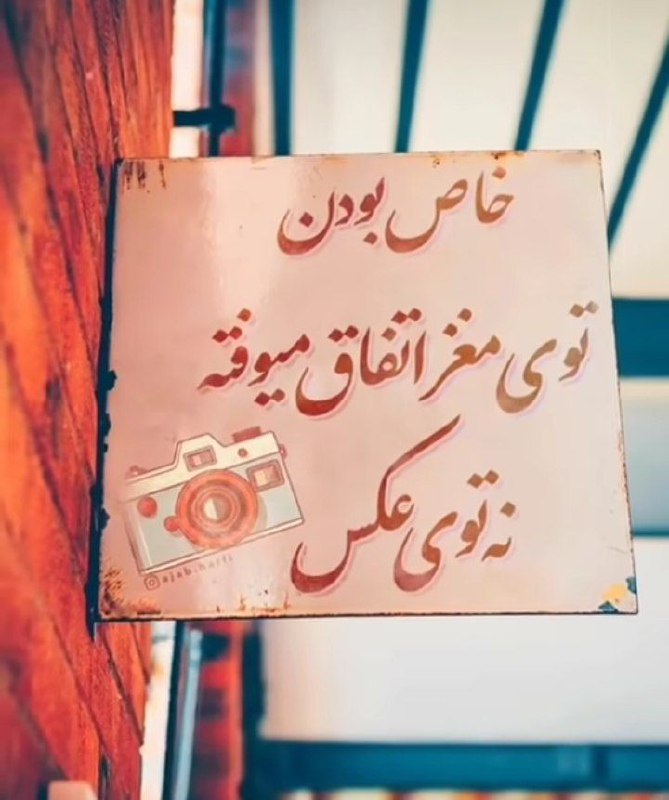 خاص بودن
توی مغز اتفاق میوفته
نه توی عکس
ajab.harfi